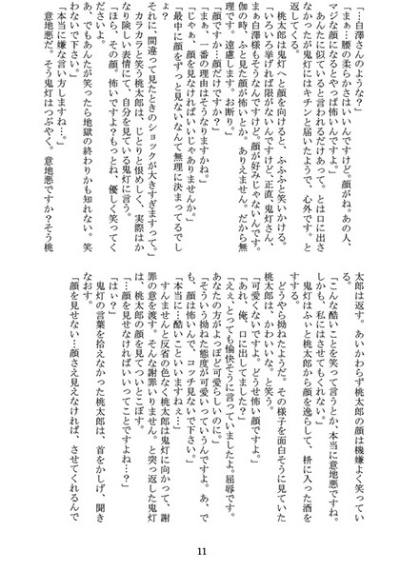 「…白澤さんのような？」
「まぁ…腰の柔らかさはいいんですけど。顔がね。あの人、
マジな顔になるとやっぱ怖いんですよ。」
　あんたに似ていると言われるだけあって。とは口に出さ
なかったが鬼灯にはキチンと届いたようで、心外です。と
返してくる。
「いろいろ挙げれば限がないんですけど、正直、鬼灯さん、
　桃太郎は鬼灯へと顔を向けると、ふふふと笑いかける。
まぁ白澤様もそうなんですけど。顔が好みじゃないんです。
伽の時、ふと見た顔が怖いとか。ありえません。だから無
理です。遠慮します。お断り。」
「顔ですか…顔だけですか？」
「まぁ、一番の理由はそうなりますかね。」
「じゃぁ、顔を見なければいいじゃありませんか。」
「最中に顔をずっと見ないなんて無理に決まってるでし
ょ？
それに、間違って見たときのショックが大きすぎますって。」
　カラカラと笑う桃太郎は、じとりと恨めしく、実際はか
なり険しい表情にて、自分を見ている鬼灯に言う。
「ほら、その顔。怖いですもん？もっとね、優しく笑ってく
ださいよ。
あ、でもあんたが笑ったら地獄の終わりかも知れない。笑
わないで下さい。」
「本当に嫌な言い方しますね…。」
　意地悪だ。そう鬼灯はつぶやく。意地悪ですか？そう桃
太郎は返す。あいかわらず桃太郎の顔は機嫌よく笑ってい
る。
「こんな酷いことを笑って言うとか、本当に意地悪ですね。
しかも、私にはさせてもくれない。」
　鬼灯はふいと桃太郎から顔を逸らして、枡に入った酒を
すする。
　どうやら拗ねたようだ。その様子を面白そうに見ていた
桃太郎は、かわいいな。と笑う。
「可愛くないですよ。どうせ怖い顔ですよ。」
「あれ、俺、口に出してました？」
「えぇ、とっても愉快そうに言っていましたよ。屈辱です。
あなたの方がよっぽど可愛らしいのに。」
「そういう拗ねた態度が可愛いっていうんですよ。あ、で
も、顔は怖いんで、コッチ見ないで下さい。」
「本当に…酷いこといいますねぇ…」
　すんませんと反省の色なく桃太郎は鬼灯に向かって、謝
罪の意を渡す。そんな謝罪いりません。と突っ返した鬼灯
は、桃太郎の顔を見てぽいとこぼす。
「…顔を見せなければいいってことですよね…？」
「はい？」
　鬼灯の言葉を拾えなかった桃太郎は、首をかしげ、聞き
なおす。
「顔を見せない…顔さえ見えなければ、させてくれるんで
11